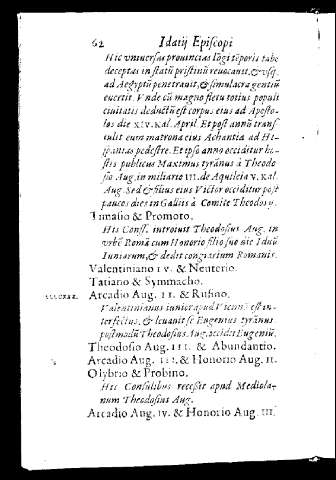 62 Idatij Episcopi
Hic vniuersas prouincias lõgi tẽporis tabe
deceptas in statũ pristinũ reuocauit, & vsq;
ad Aegyptũ penetrauit, & simulacra gentiũ
euertit. Vnde cũ magno fletu totius populi
ciuitatis deductũ est corpus eius ad Aposto-
los die xiv. kal. April. Et post annũ transf-
tulit eum matrona eius Achantia ad Hi-
spanias pedestre. Et ipso anno occiditur ho-
stis publicus Maximus tyrãnus à Theodo
sio Aug. in miliario III. de Aquileia v. kal.
Aug. Sed & filius eius Victor occiditur post
paucos dies in Galliis à Comite Theodosij.
Timasio & Promoto.
His Conss. introiuit Theodosius Aug. in
vrbẽ Romã cum Honorio filio suo die Iduũ
Iuniarum, & dedit congiarium Romanis.
Valentiniano IV. & Neuterio.
Tatiano & Symmacho.
Arcadio Aug. II. & Rufino.
Valentinianus iunior apud Viennã est in-
terfectus, & leuauit se Eugenius tyrãnus
postmodũ Theodosius Aug. occidit Eugeniũ.
Theodosio Aug. III. & Abundantio.
Arcadio Aug. III. & Honorio Aug. II.
Olybrio & Probino.
His Consulibus recessit apud Mediola-
num Theodosius Aug.
Arcadio Aug. IV. & Honorio Aug. III.